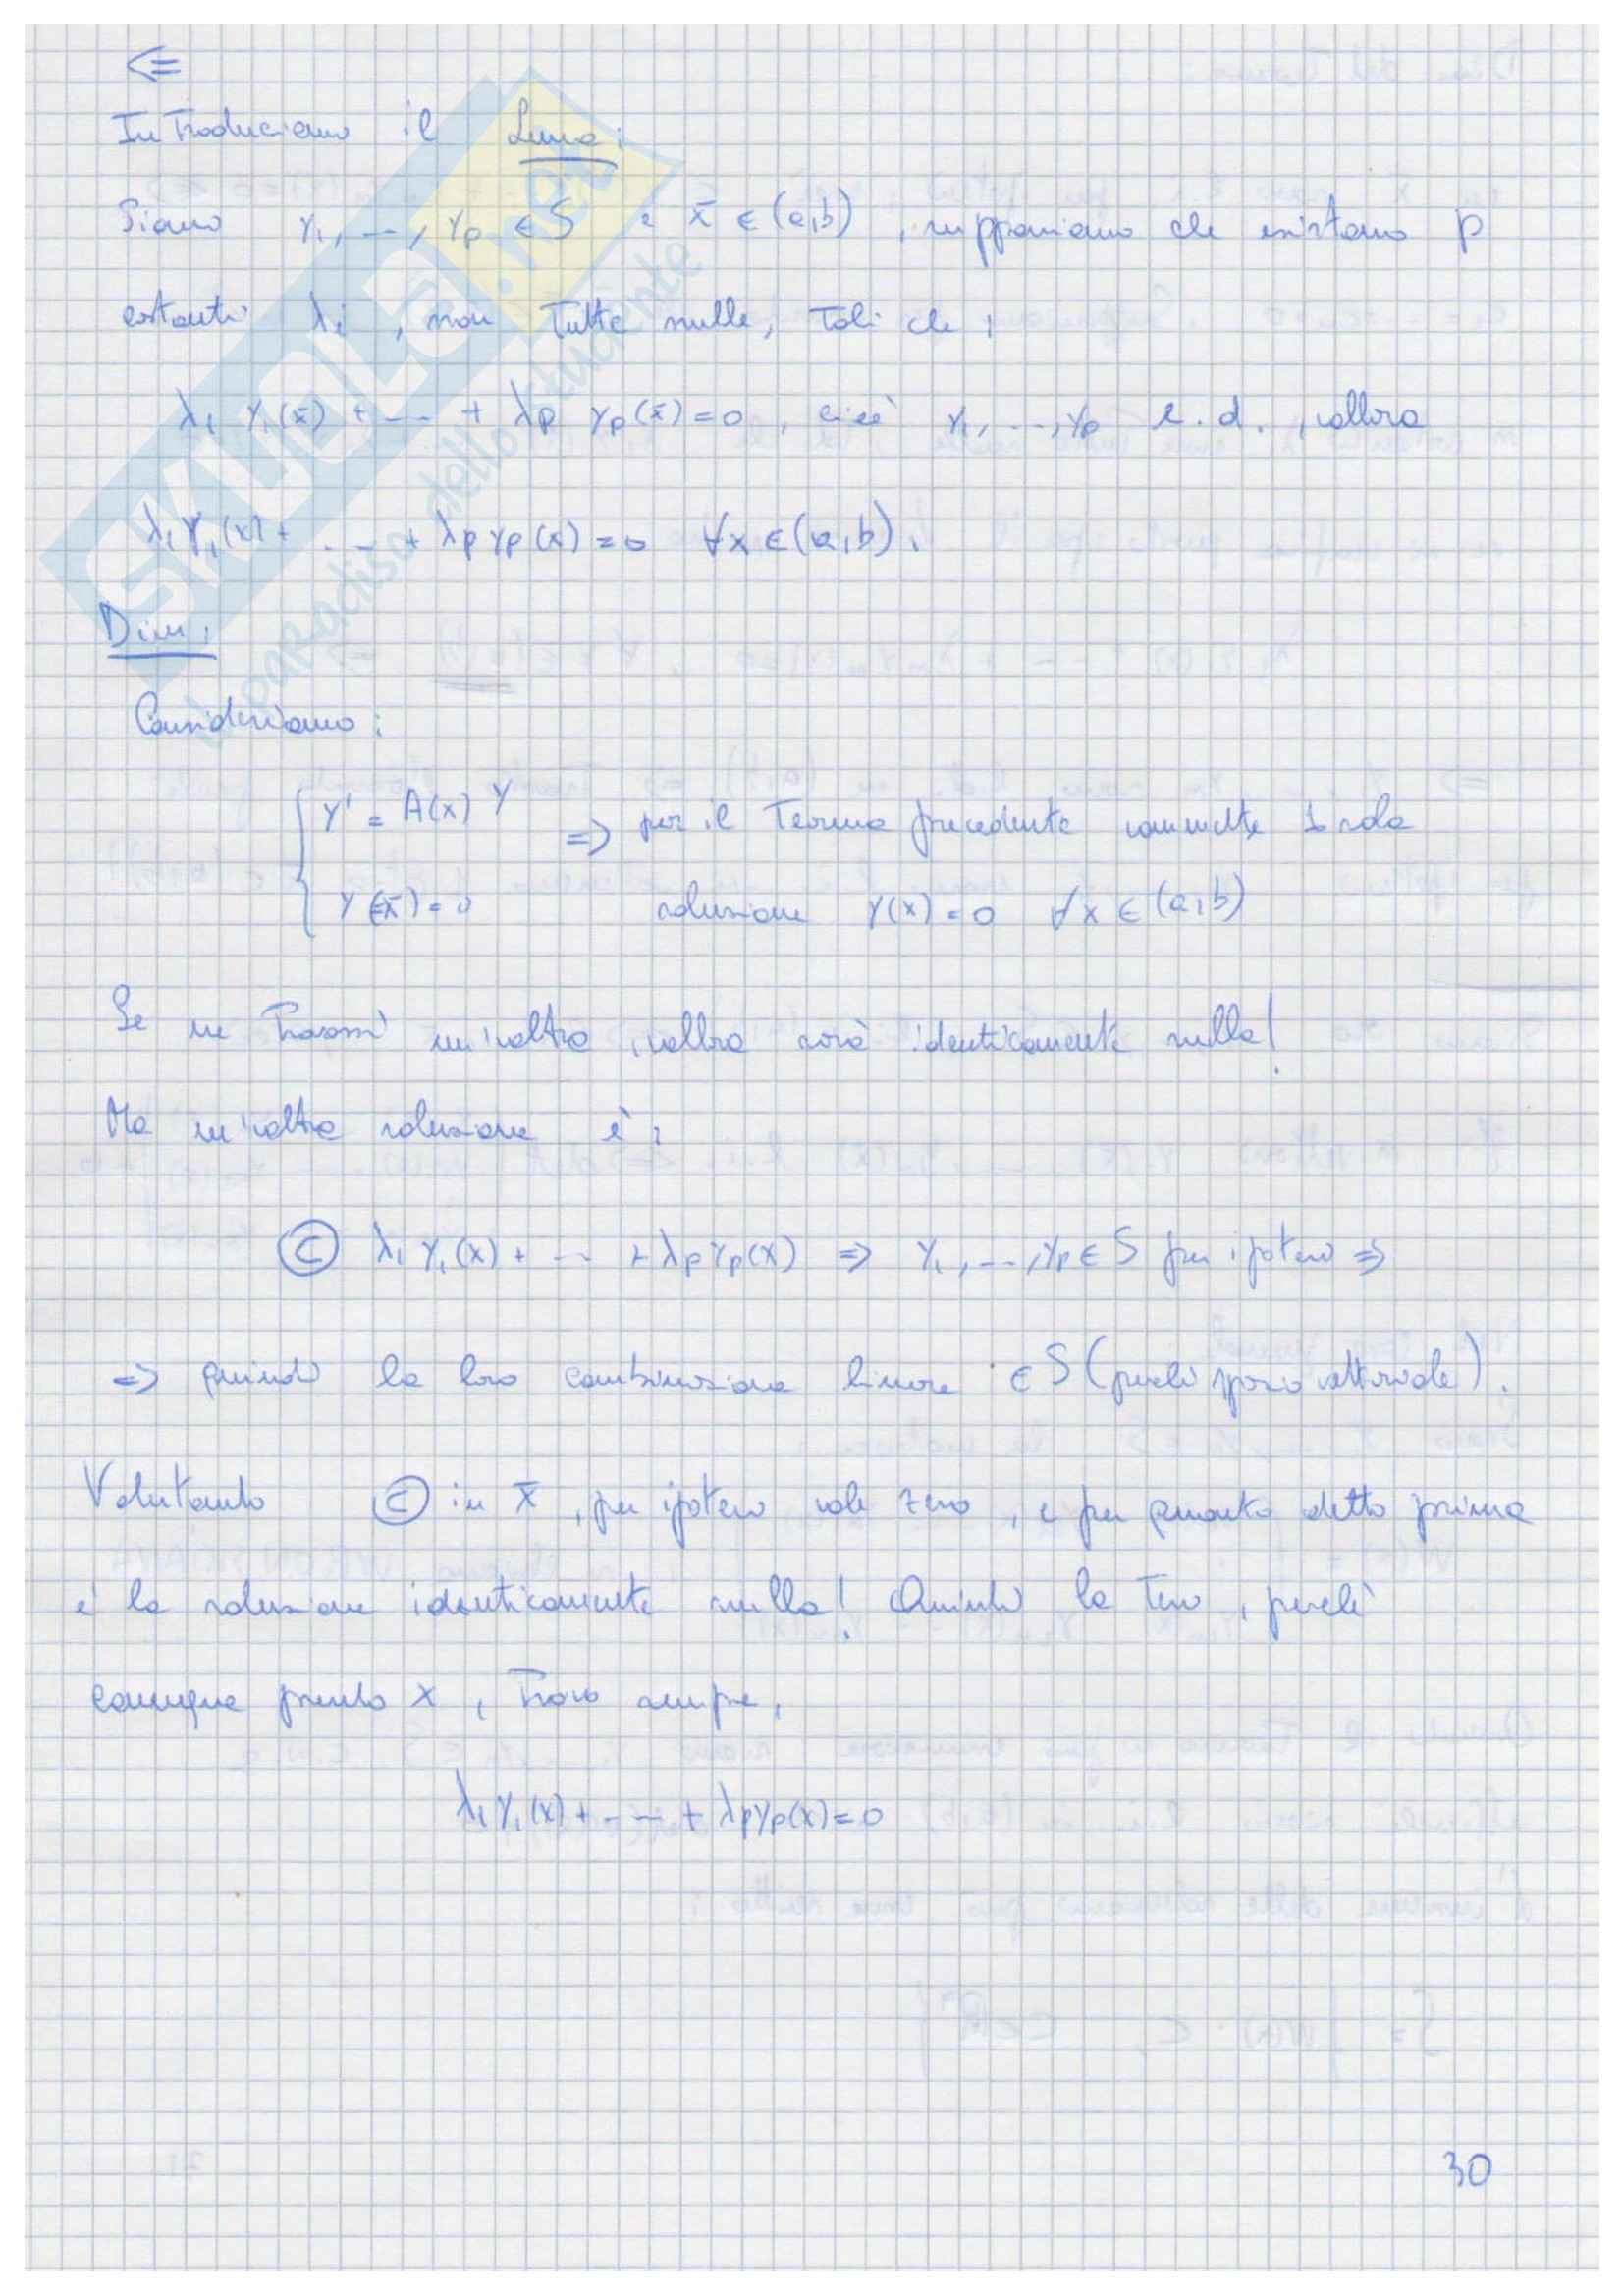 <=
Introduciamo il Lemma:
Siano y₁, ..., yₚ ∈ S e x̄ ∈ (a,b), supponiamo che esistano p
costanti λᵢ, non tutte nulle, tali che:
λ₁ y₁(x̄) + ... + λₚ yₚ(x̄) = 0, cioè y₁, ..., yₚ l.d., allora
λ₁y₁(x) + ... + λₚyₚ(x) = 0 ∀x ∈ (a,b).
Dim:
Consideriamo:
{ y' = A(x) y => per il Teorema precedente ammette 1 sola
y(x̄) = 0 soluzione y(x) = 0 ∀x ∈ (a,b)
Se ne trovassi un'altra, allora sarà identicamente nulla!
Ma un'altra soluzione è:
Ⓒ λ₁y₁(x) + ... + λₚyₚ(x) => y₁, ..., yₚ ∈ S per ipotesi =>
=> quindi la loro combinazione lineare ∈ S (perché spazio vettoriale).
Valutando Ⓒ in x̄, per ipotesi vale zero, e per quanto detto prima
è la soluzione identicamente nulla! Quindi la tesi, perché
comunque prendo x, trovo sempre,
λ₁y₁(x) + ... + λₚyₚ(x) = 0
30
SKUOLA.net
il paradiso dello studente